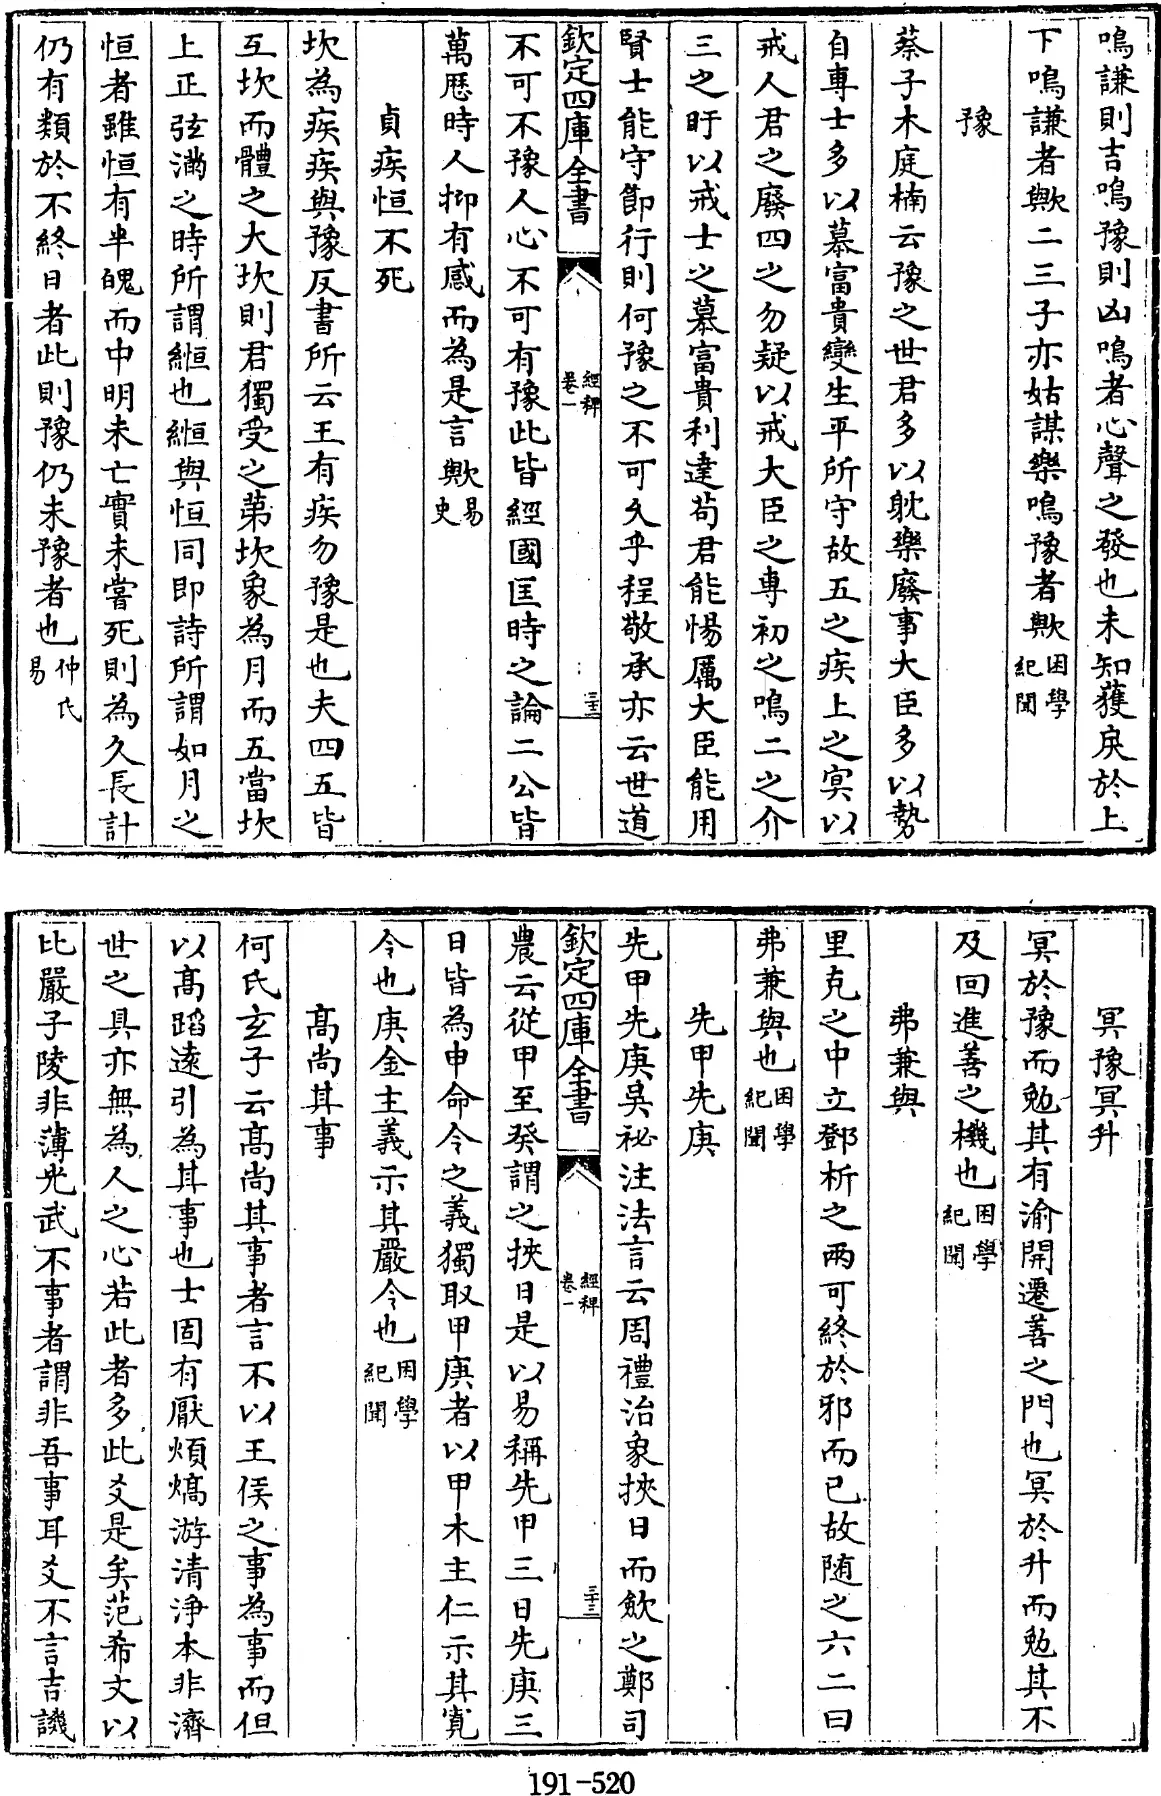 鳴謙則吉鳴豫則凶鳴者心聲之發也未知獲戾於上
下鳴謙者歟二三子亦姑謀樂鳴豫者歟困學紀聞
豫
蔡子木庭楠云豫之世君多以耽樂廢事大臣多以勢
自專士多以慕富貴變生平所守故五之疾上之冥以
戒人君之廢四之勿疑以戒大臣之專初之鳴二之介
三之盱以戒士之慕富貴利達苟君能惕厲大臣能用
賢士能守節行則何豫之不可久乎程敬承亦云世道
欽定四庫全書
經稗
卷一
三十二
不可不豫人心不可有豫此皆經國匡時之論二公皆
萬歷時人抑有感而為是言歟易史
貞疾恒不死
坎為疾疾與豫反書所云王有疾勿豫是也夫四五皆
互坎而體之大坎則君獨受之第坎象為月而五當坎
上正弦滿之時所謂緪也緪與恒同即詩所謂如月之
恒者雖恒有半魄而中明未亡實未嘗死則為久長計
仍有類於不終日者此則豫仍未豫者也仲氏易
冥豫冥升
冥於豫而勉其有渝開遷善之門也冥於升而勉其不
及回進善之機也困學紀聞
弗兼與
里克之中立鄧析之兩可終於邪而已故随之六二曰
弗兼與也困學紀聞
先甲先庚
先甲先庚吳祕注法言云周禮治象挾日而歛之鄭司
欽定四庫全書
經稗
卷一
三十三
農云從甲至癸謂之挾日是以易稱先甲三日先庚三
日皆為申命令之義獨取甲庚者以甲木主仁示其寛
令也庚金主義示其嚴令也困學紀聞
高尚其事
何氏玄子云高尚其事者言不以王侯之事為事而但
以高蹈遠引為其事也士固有厭煩熇游清淨本非濟
世之具亦無為人之心若此者多此爻是矣范希文以
比嚴子陵非薄光武不事者謂非吾事耳爻不言吉譏
191-520